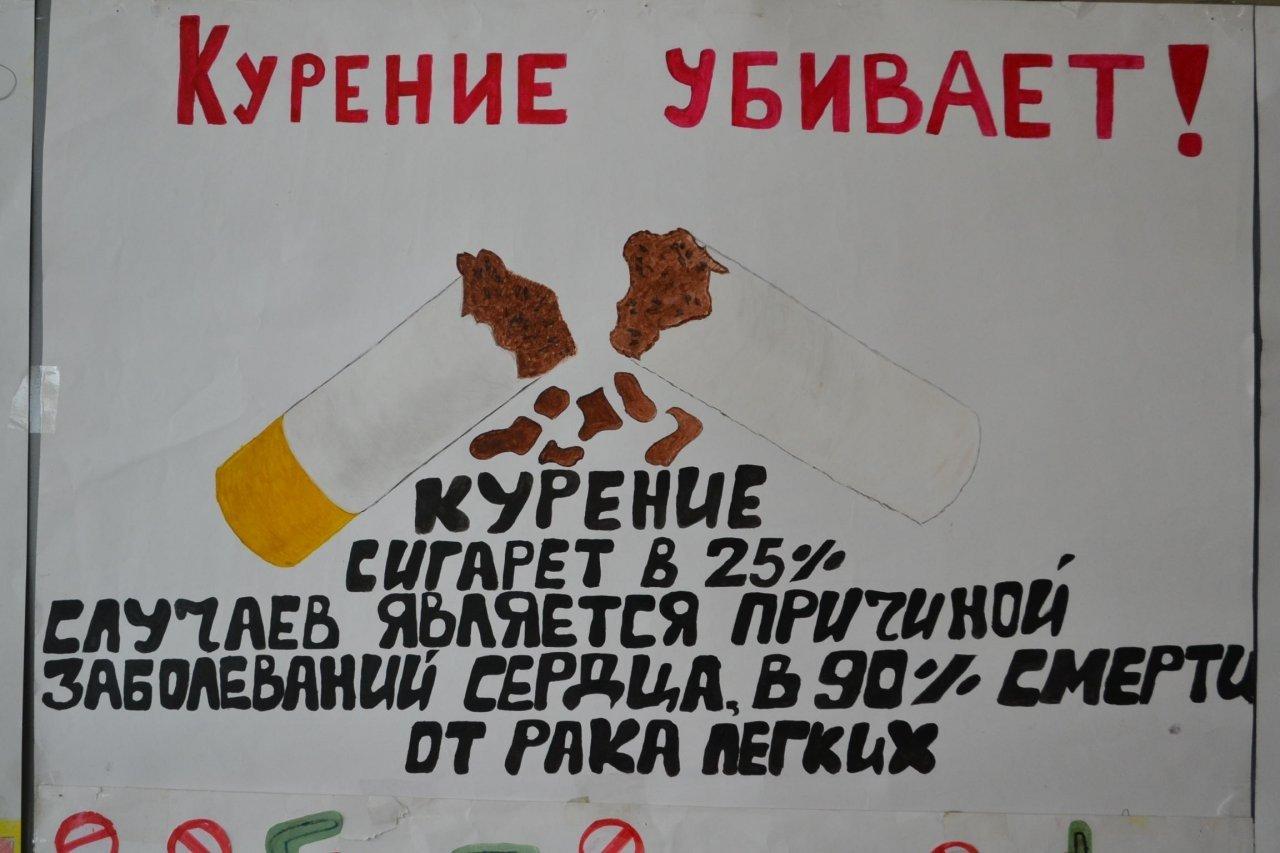 КУРЕНИЕ УБИВАЕТ!
КУРЕНИЕ
СИГАРЕТ В 25%
СЛУЧАЕВ ЯВЛЯЕТСЯ ПРИЧИНОЙ
ЗАБОЛЕВАНИЙ СЕРДЦА, В 90% СМЕРТИ
ОТ РАКА ЛЕГКИХ